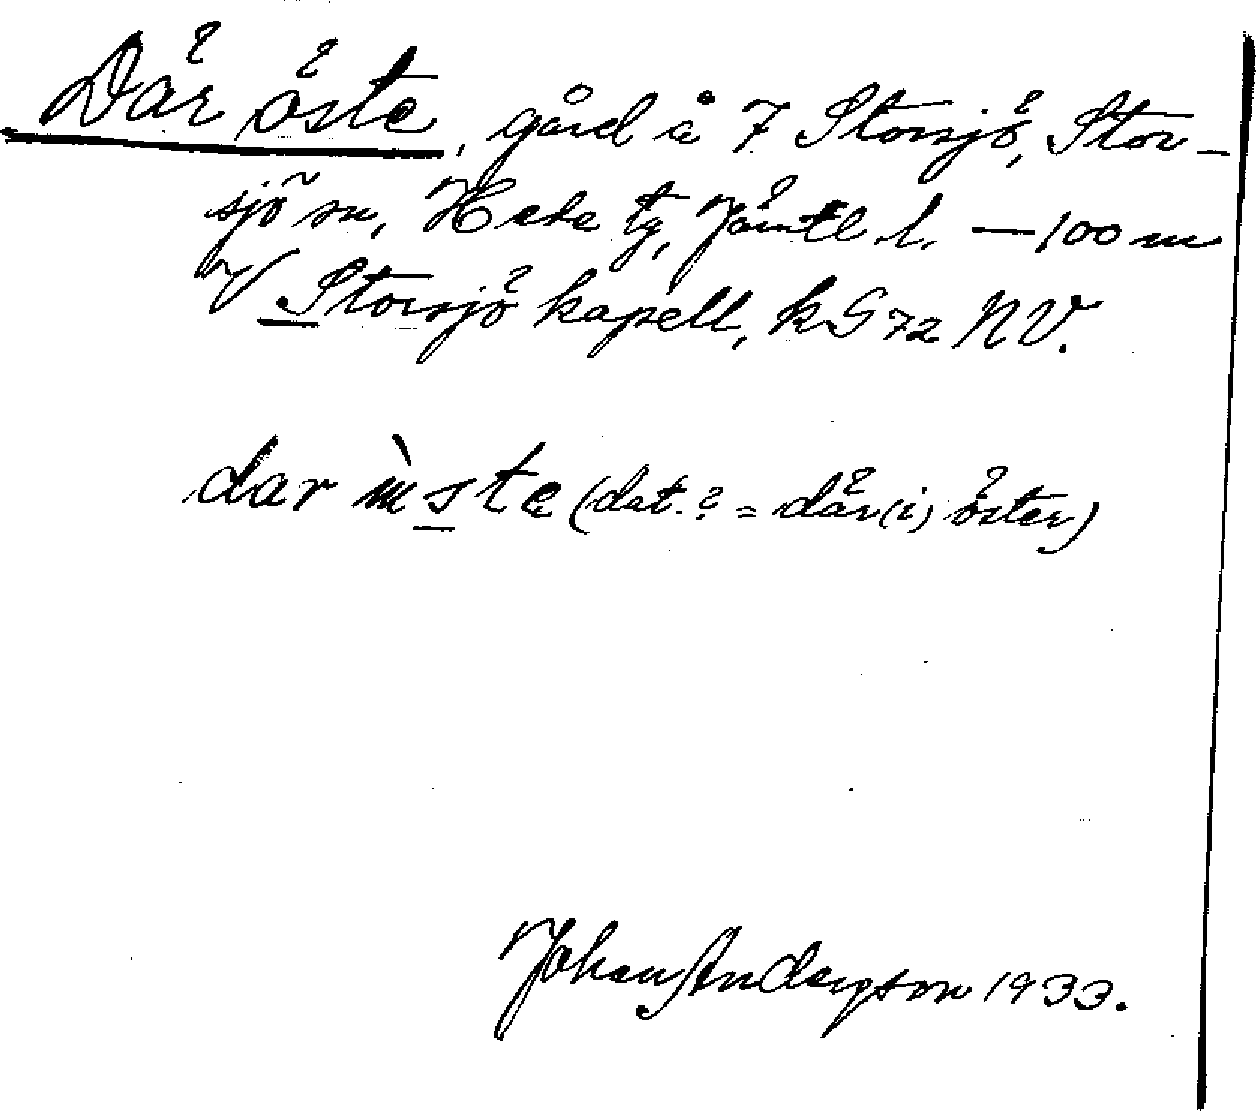 Där öste, gård å 7 Storsjö, Stor-
sjö sn, Hede tg, Jämtl. l. — 100 m
V Storsjö kapell, kG 72 NV.
dar ste (dat.? = där (i) öster)
Johan Anderson 1933.